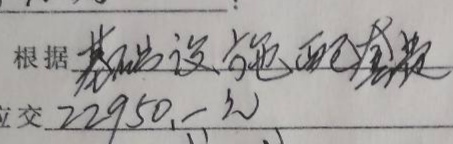 根据基础设施配套款
应交22950.一元